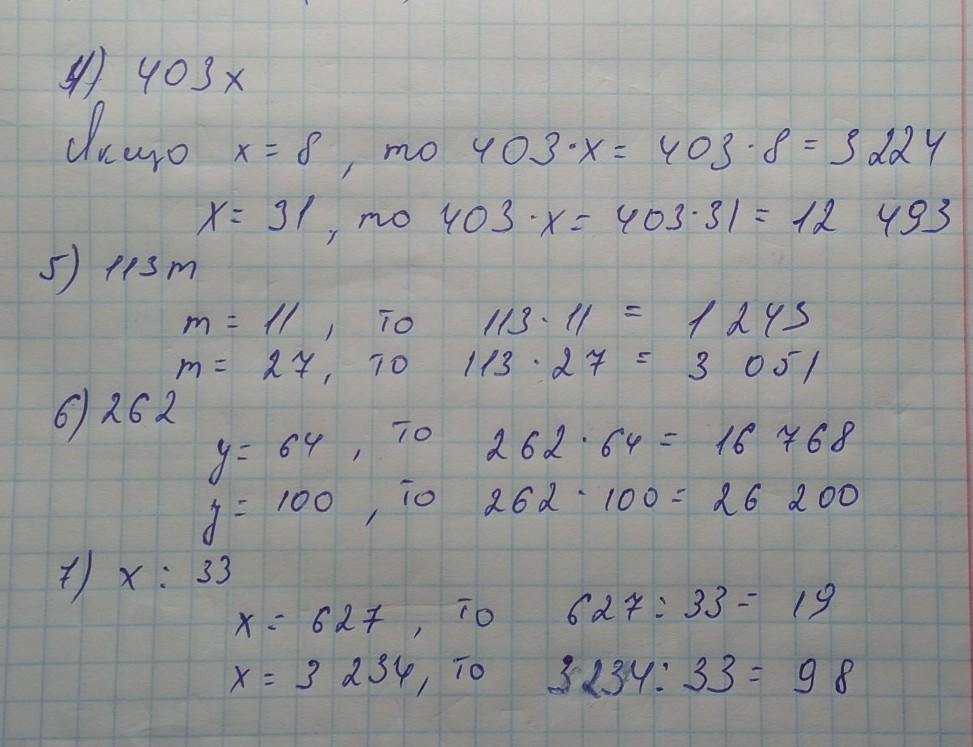 4) 403x
Якщо x = 8, то 403·x = 403·8 = 3224
x = 31, то 403·x = 403·31 = 12 493
5) 113m
m = 11, то 113·11 = 1 243
m = 27, то 113·27 = 3 051
6) 262
y = 64, то 262·64 = 16 768
y = 100, то 262·100 = 26 200
7) x : 33
x = 627, то 627 : 33 = 19
x = 3 234, то 3 234 : 33 = 98